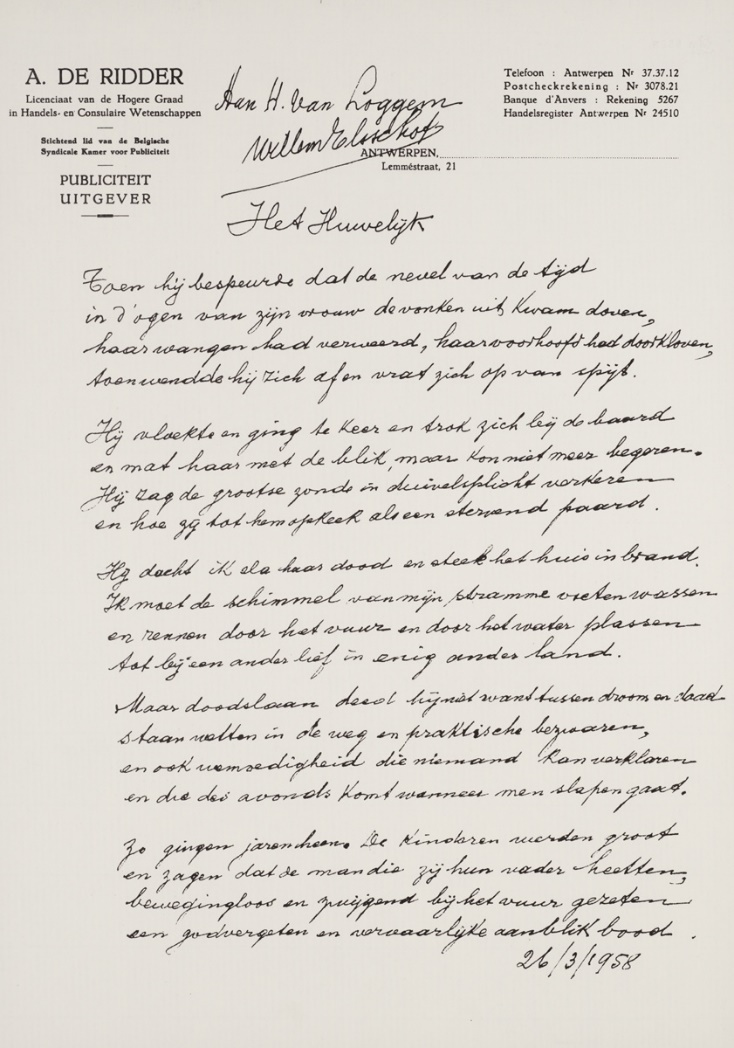 A. DE RIDDER
Licenciaat van de Hogere Graad
in Handels- en Consulaire Wetenschappen
Stichtend lid van de Belgische
Syndicale Kamer voor Publiciteit
PUBLICITEIT
UITGEVER
Aan H. van Loggem
Willem Elsschot
Telefoon : Antwerpen Nr 37.37.12
Postcheckrekening : Nr 3078.21
Banque d'Anvers : Rekening 5267
Handelsregister Antwerpen Nr 24510
ANTWERPEN,
Lemméstraat, 21
Het Huwelijk
Toen hij bespeurde dat de nevel van de tijd
in d'ogen van zijn vrouw de vonken uit kwam doven,
haar wangen had verweerd, haar voorhoofd had doorkloven,
toen wendde hij zich af en vrat zich op van spijt.
Hij vloekte en ging te keer en trok zich bij de baard
en mat haar met de blik, maar kon niet meer begeren.
Hij zag de grootse zonde in duivelsplicht verkeren
en hoe zij tot hem opkeek als een stervend paard.
Hij dacht ik sla haar dood en steek het huis in brand.
Ik moet de schimmel van mijn stramme voeten wassen
en rennen door het vuur en door het water plassen
tot bij een ander lief in enig ander land.
Maar doodslaan deed hij niet want tussen droom en daad
staan wetten in de weg en praktische bezwaren,
en ook weemoedigheid die niemand kan verklaren
en die des avonds komt wanneer men slapen gaat.
Zo gingen jaren heen. De kinderen werden groot
en zagen dat de man die zij hun vader heetten,
bewegingloos en zwijgend bij het vuur gezeten
een godvergeten en vervaarlijke aanblik bood.
26/3/1958